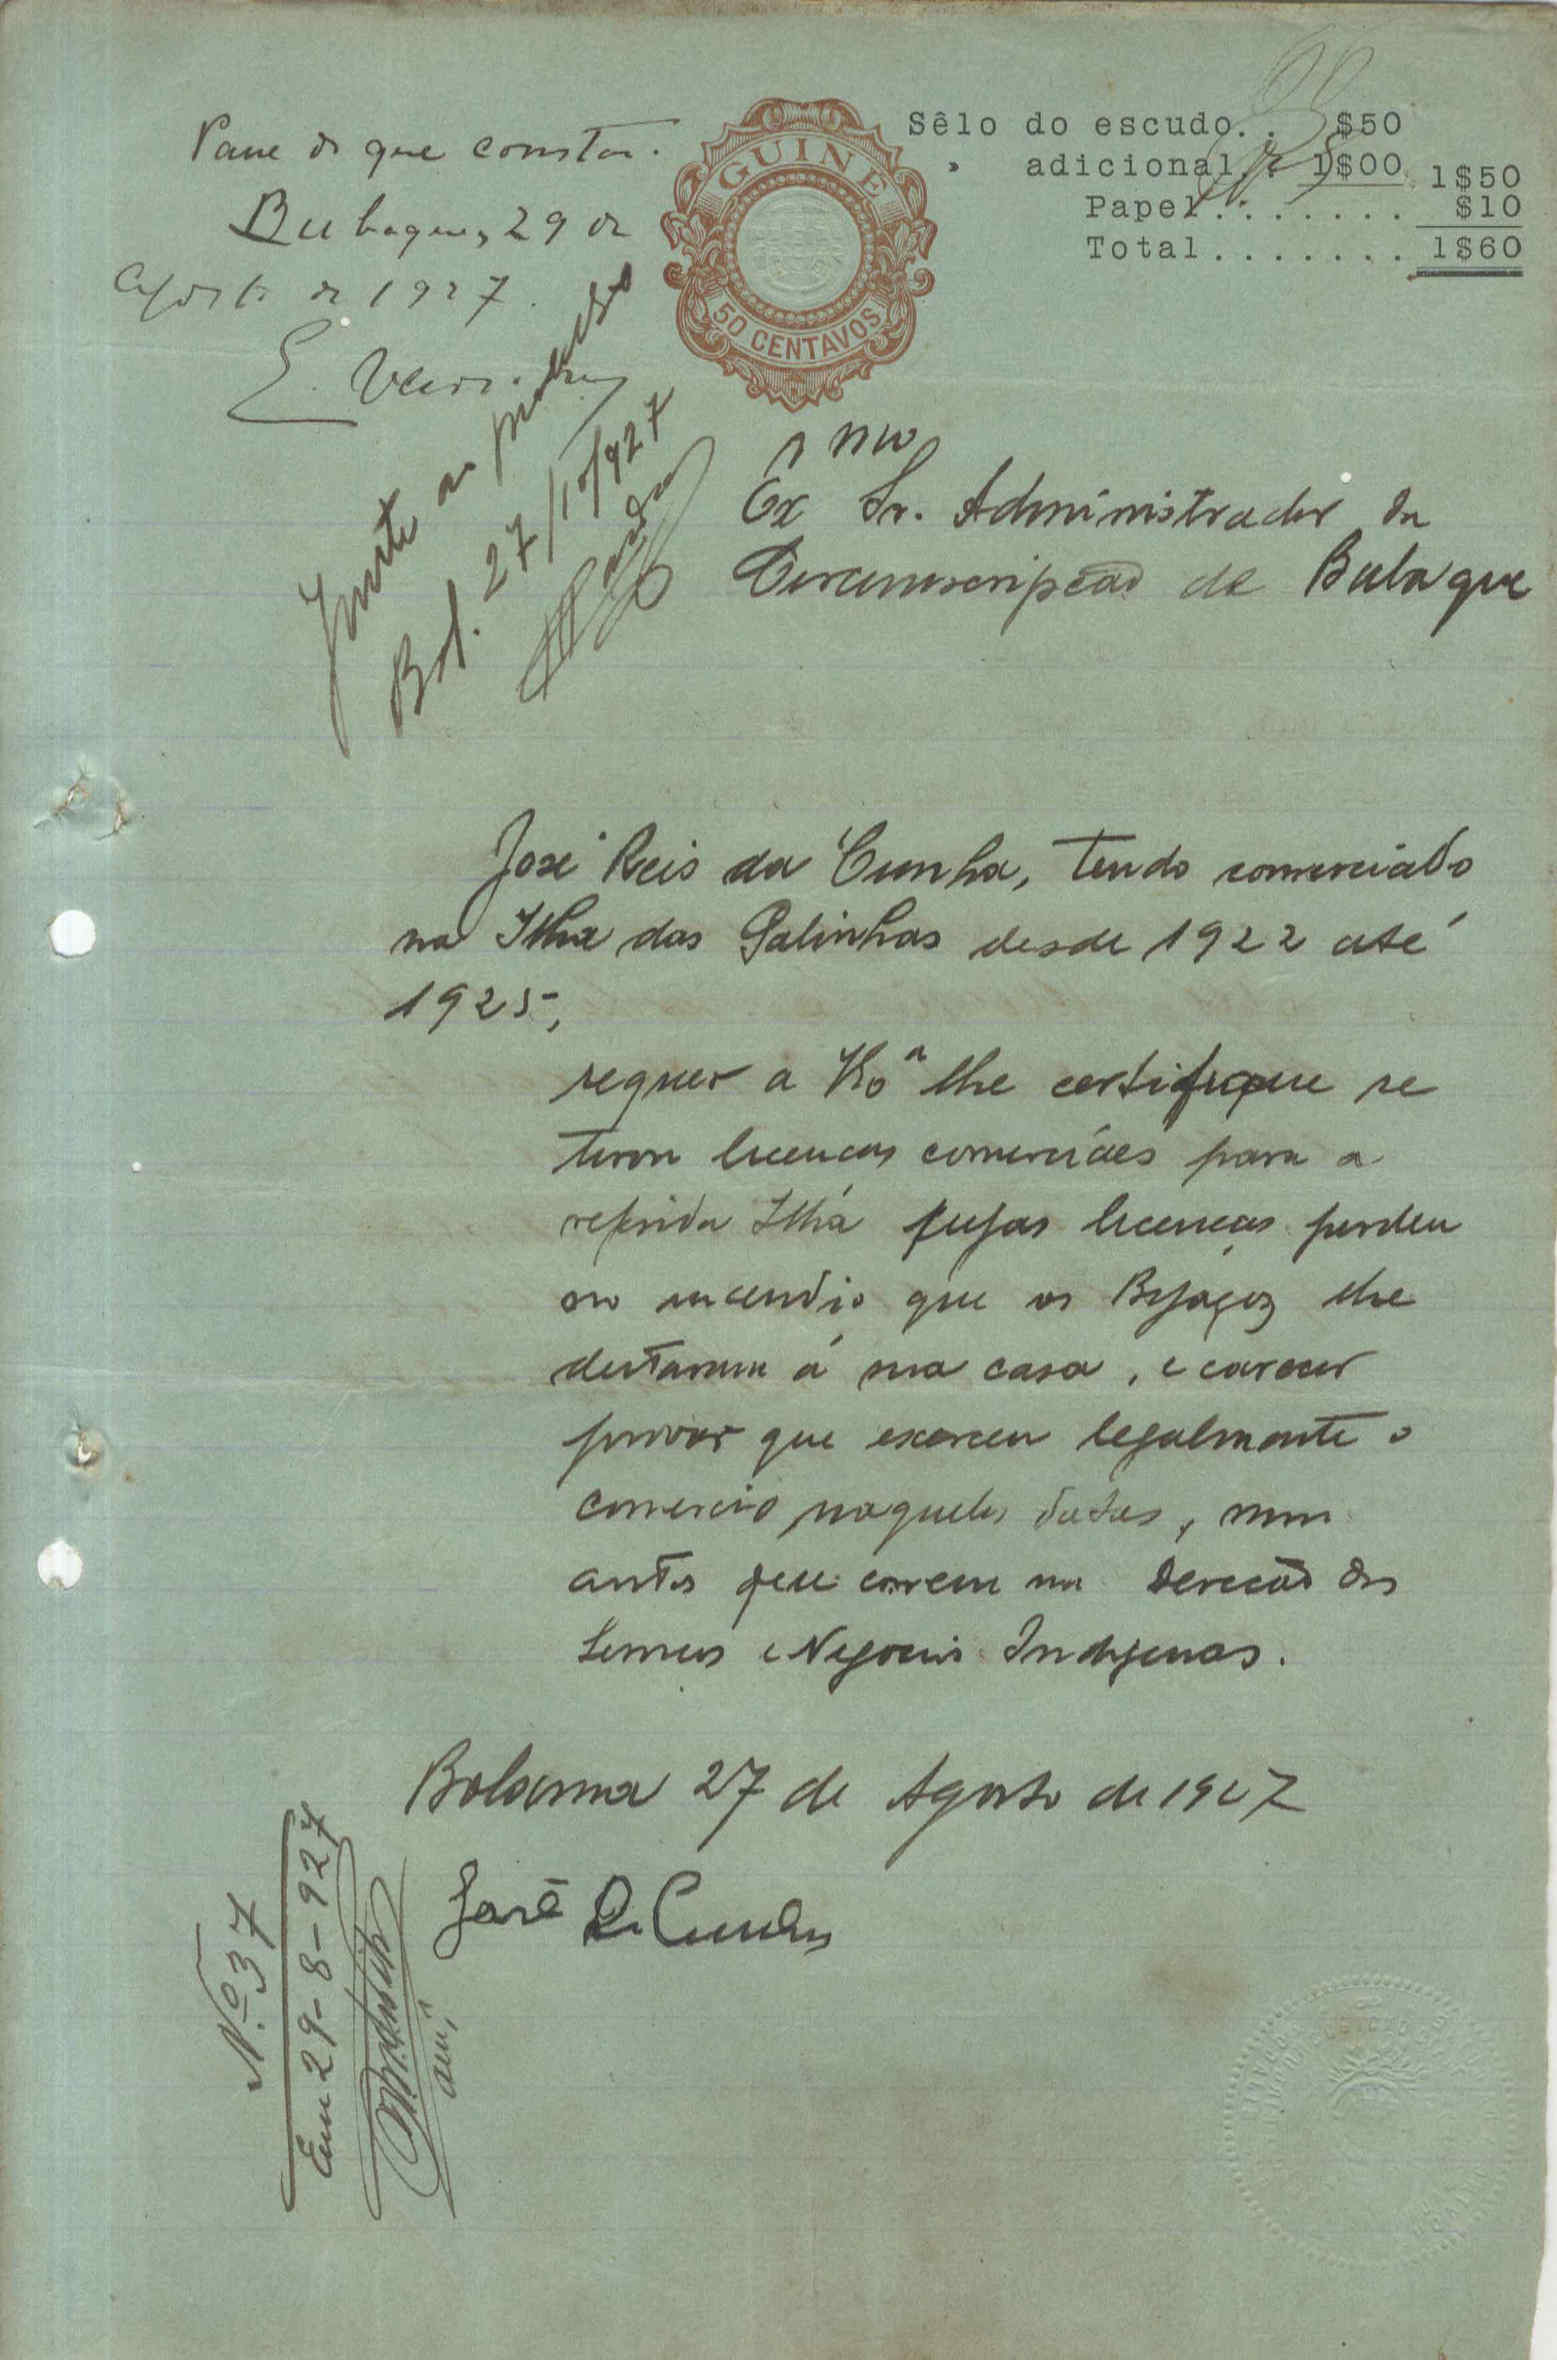 Passe do que constar.
Bubaque, 29 de
Agosto de 1927.
GUINÉ
50 CENTAVOS
Sêlo do escudo.. $50
" adicional.. 1$00 1$50
Papel....... $10
Total....... 1$60
Junte ao processo
Bol. 27/10/927
Exmo Sr. Administrador da
Circunscripção de Bubaque
José Reis da Cunha, tendo comerciado
na Ilha das Galinhas desde 1922 até
1925,
requer a V. Exa lhe certifique se
tirou licenças comerciaes para a
referida Ilha cujas licenças perdeu
no incendio que os Bijagoz lhe
deitaram á sua casa, e carecer
provar que exerceu legalmente o
comercio naquelas datas, nuns
autos que correm na Direcção dos
Serviços e Negocios Indigenas.
Bolama 27 de Agosto de 1927
José R. Cunha
N.º 37
Em 29-8-927